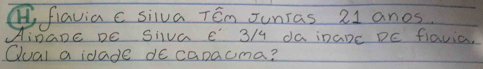 H, flavia E Silva TÊm Juntas 21 anos.
Aidade DE Silva E' 3/4 da idade DE flavia.
Qual a idade dE cadauma?